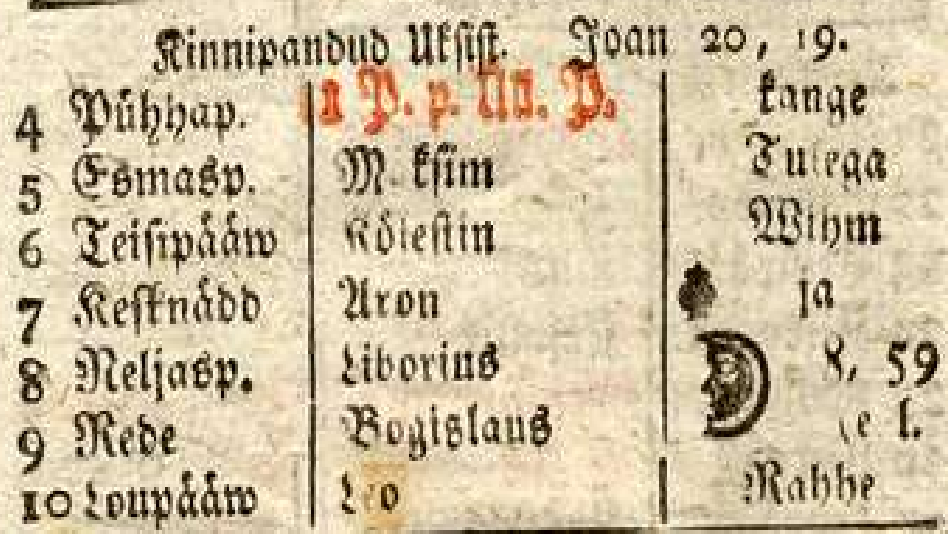 Kinnipandud Uksist. Joan 20, 19.
4 Pühhap. 1 P. p. Ül. P. kange
5 Esmasp. M ksim Tulega
6 Teisipääw Kölestin Wihm
7 Kesknädd Aron ja
8 Neljasp. Liborius 8, 59
9 Rede Bogislaus e l.
10 Loupääw Leo Rahhe